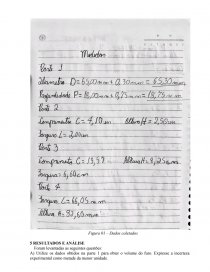 Medidas
Parte 1
Diâmetro D = 65,00mm + 0,30mm = 65,30mm
Profundidade P = 18,00mm + 0,75mm = 18,75mm
Parte 2
Comprimento C = 4,10cm Altura H = 2,50cm
Largura L = 2,00cm
Parte 3
Comprimento C =
Largura =
Parte 4
Largura L = 66,05mm
Altura =
Figura 01 – Dados coletados
5 RESULTADOS E ANÁLISE
Foram levantadas as seguintes questões:
A) Utilize os dados obtidos na parte 1 para obter o volume do furo. Expresse a incerteza
experimental como metade da menor unidade.